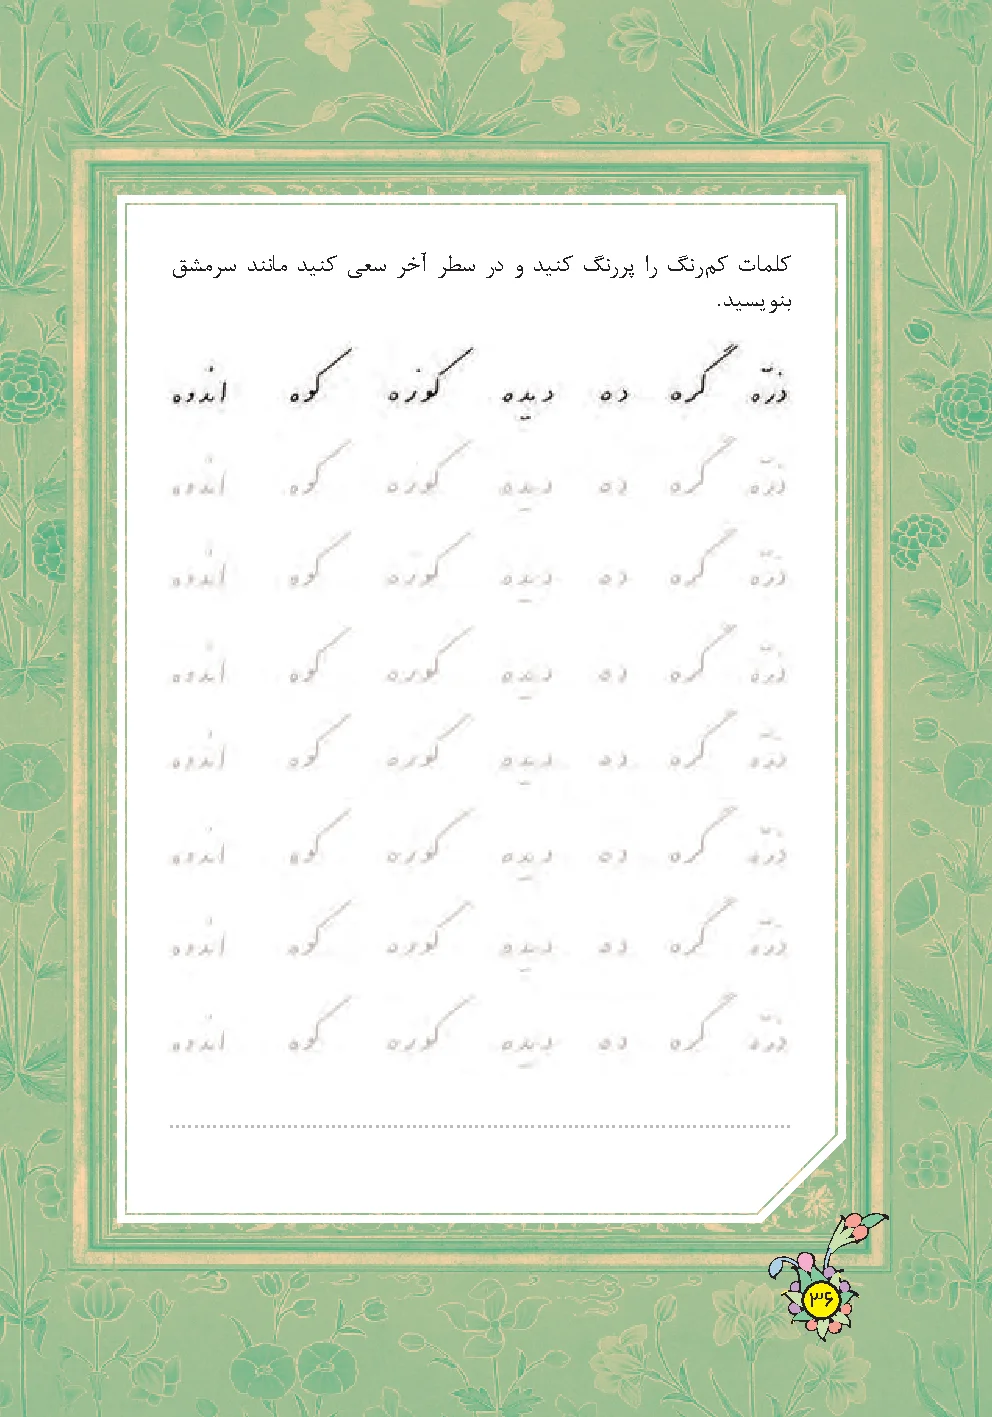 کلمات کم‌رنگ را پررنگ کنید و در سطر آخر سعی کنید مانند سرمشق
بنویسید.
ذرّه گره ده دیده کوزه کوه اندوه
ذرّه گره ده دیده کوزه کوه اندوه
ذرّه گره ده دیده کوزه کوه اندوه
ذرّه گره ده دیده کوزه کوه اندوه
ذرّه گره ده دیده کوزه کوه اندوه
ذرّه گره ده دیده کوزه کوه اندوه
ذرّه گره ده دیده کوزه کوه اندوه
ذرّه گره ده دیده کوزه کوه اندوه
۳۶